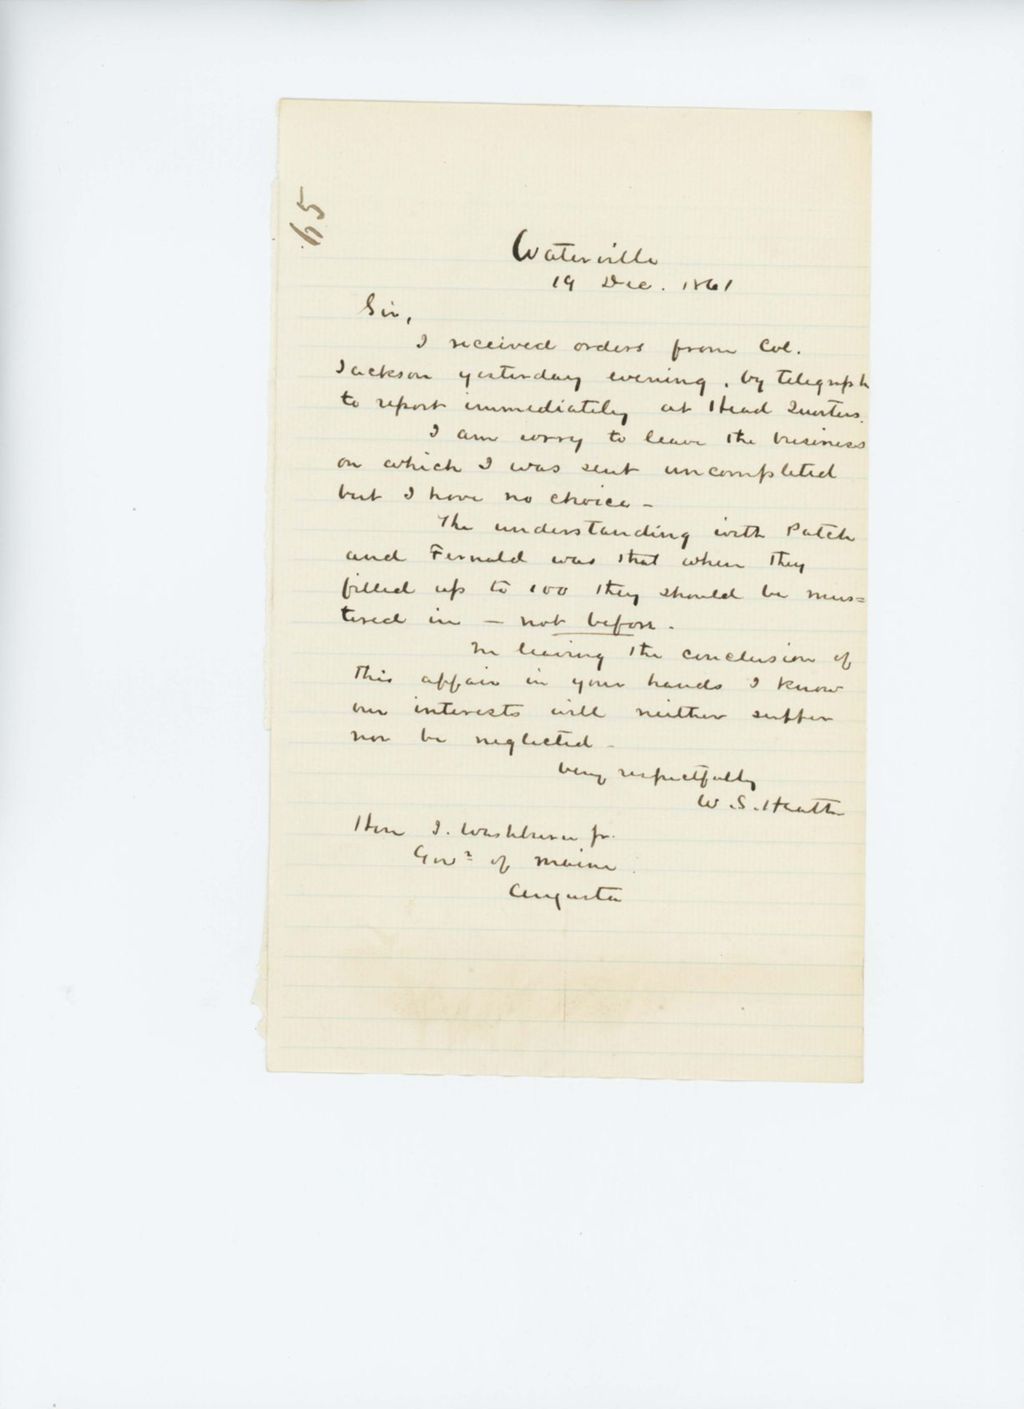 65
Waterville
19 Dec. 1861
Sir,
I received orders from Col.
Jackson yesterday evening, by telegraph
to report immediately at Head Quarters.
I am sorry to leave the business
on which I was sent uncompleted
but I have no choice -
The understanding with Patch
and Fernald was that when they
filled up to 100 they should be mus=
tered in - not before.
In leaving the conclusion of
this affair in your hands I know
our interests will neither suffer
nor be neglected -
Very respectfully
W. S. Heath
Hon I. Washburn jr.
Govr of Maine
Augusta